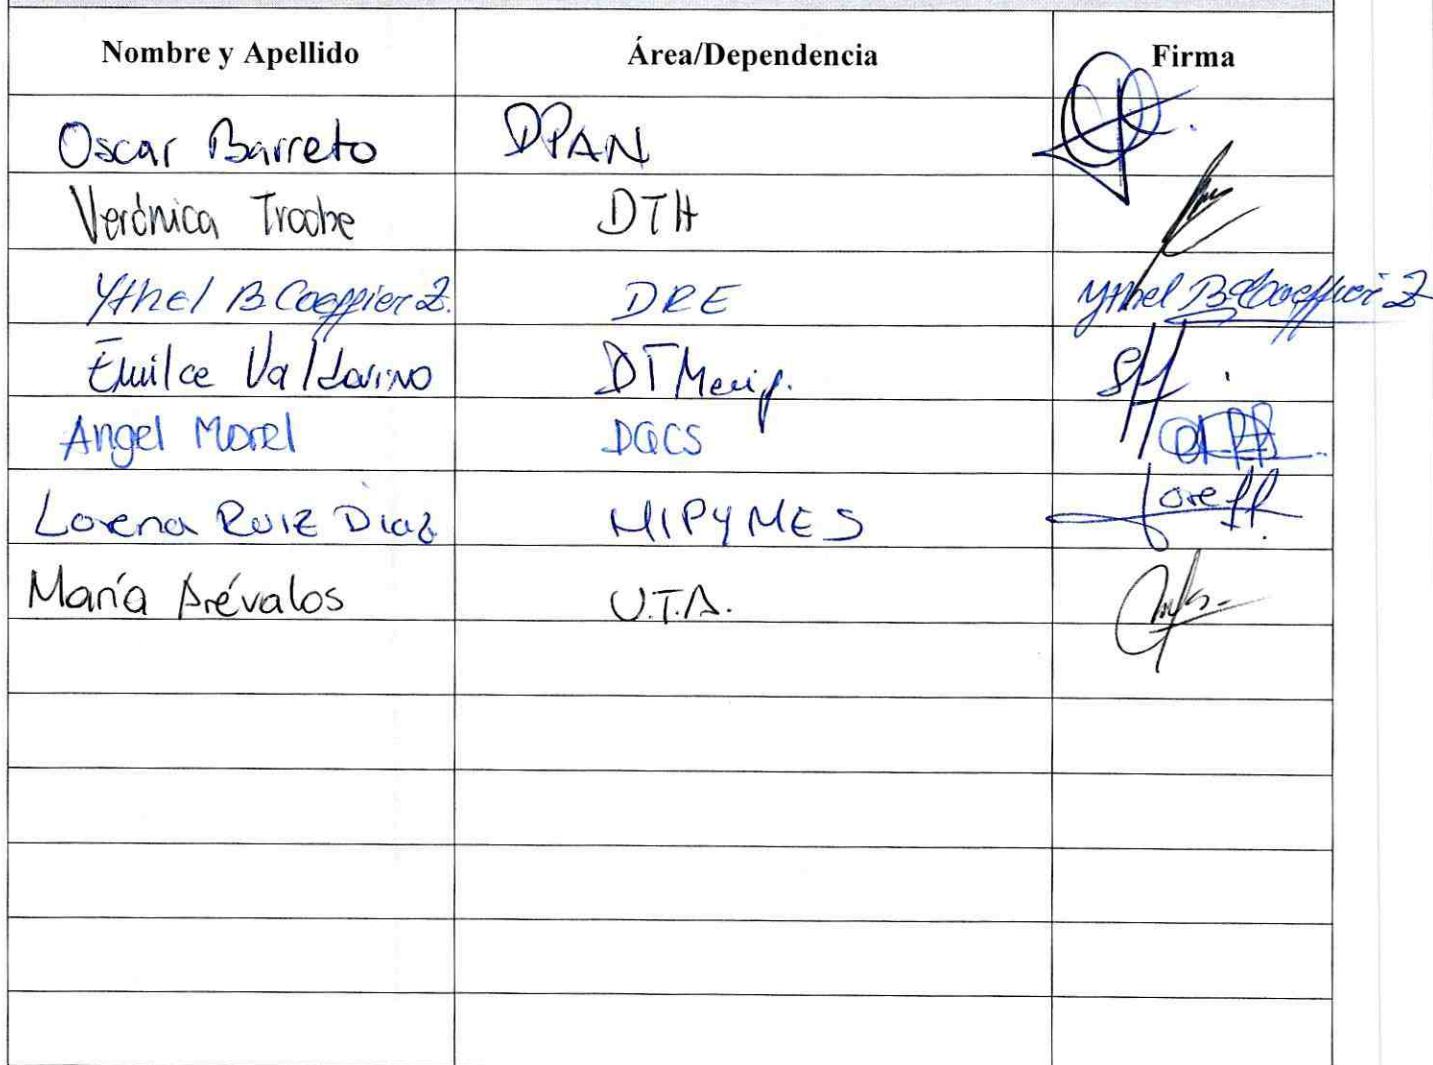 Nombre y Apellido Área/Dependencia Firma
Oscar Barreto DPAN
Verónica Troche DTH
Ythel B Coeffier Z. DRE Ythel B Coeffier Z
Emilce Valdovino
Angel Morel DGCS
Lorena Ruiz Diaz MIPYMES
María Arévalos U.T.A.